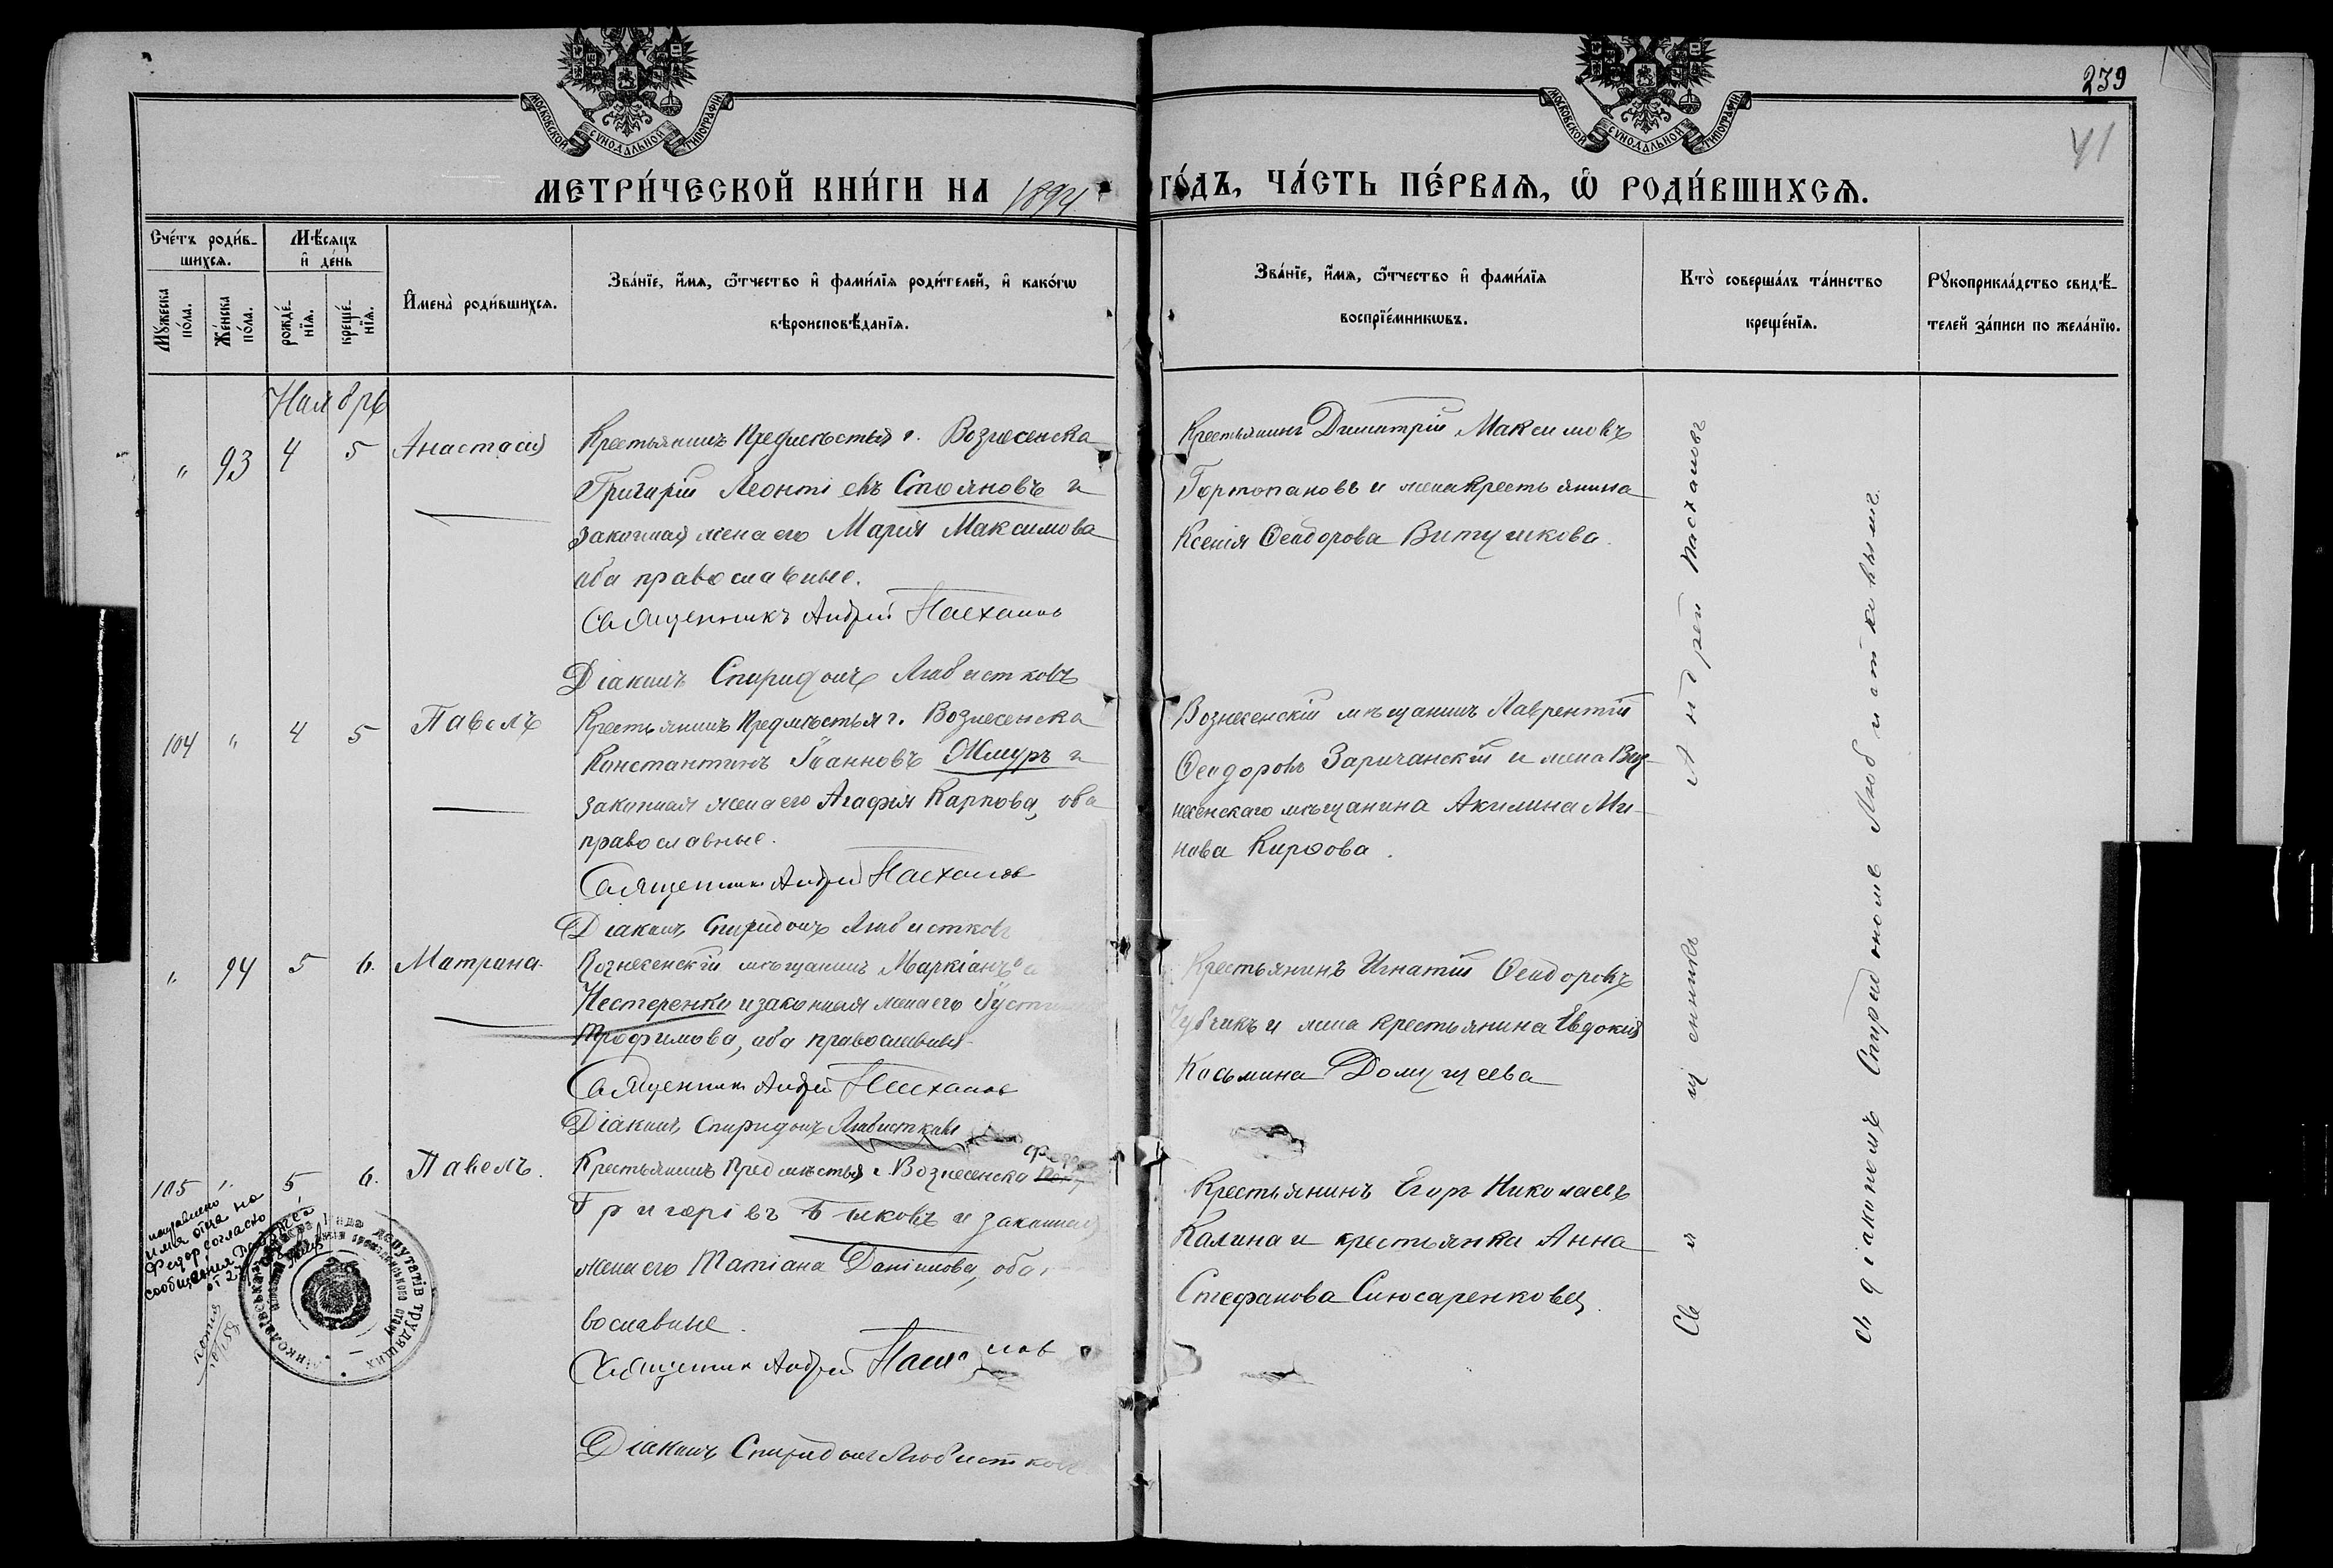 МОСКОВСКОЙ СѴНОДАЛЬНОЙ ТИПОГРАФІИ.
МОСКОВСКОЙ СѴНОДАЛЬНОЙ ТИПОГРАФІИ.
239
41
МЕТРИ́ЧЕСКОЙ КНИ́ГИ НА 1894 ГО́ДЪ, ЧА́СТЬ ПЕ́РВАѦ, Ѡ РОДИ́ВШИХСѦ.
Сче́тъ роди́вшихсѧ.
Мꙋ́жеска по́ла.
Же́нска по́ла.
Мѣ́сѧцъ и҆ де́нь
рожде́нїѧ.
креще́нїѧ.
И҆мена̀ роди́вшихсѧ.
Зва́нїе, и҆́мѧ, ѻ҆́тчество и҆ фами́лїѧ роди́телей, и҆ како́гѡ
вѣроисповѣ́данїѧ.
Зва́нїе, и҆́мѧ, ѻ҆́тчество и҆ фами́лїѧ
воспрїе́мникѡвъ.
Кто̀ соверша́лъ та́инство
креще́нїѧ.
Рꙋкоприкла́дство свидѣ́-
телей за́писи по жела́нїю.
Ноябрь
" 93 4 5 Анастасія
Крестьянинъ Предмѣстья г. Вознесенска
Григорій Леонтіевъ Стояновъ и
законная жена его Марія Максимова
оба православные.
Священникъ Андрей Пасхаловъ
Діаконъ Спиридонъ Любистковъ
Крестьянинъ Димитрій Максимовъ
Гортопановъ и жена крестьянина
Ксенія Ѳеодорова Витушкова.
104 " 4 5 Павелъ
Крестьянинъ Предмѣстья г. Вознесенска
Константинъ Іоанновъ Жмуръ и
законная жена его Агафія Карпова, оба
православные.
Священникъ Андрей Пасхаловъ
Діаконъ Спиридонъ Любистковъ
Вознесенскій мѣщанинъ Лаврентій
Ѳеодоровъ Заричанскій и жена Воз-
несенскаго мѣщанина Акилина Ми-
нова Кирѳова.
" 94 5 6. Матрона.
Вознесенскій мѣщанинъ Маркіанъ
Нестеренко и законная жена его
Трофимова, оба православные
Священникъ Андрей Пасхаловъ
Діаконъ Спиридонъ Любистковъ
Крестьянинъ Игнатій Ѳеодоровъ
Чубчикъ и жена крестьянина Евдокія
Косьмина Домущеева
105 " 5 6. Павелъ.
Крестьянинъ Предмѣстья г. Вознесенска
Григоріевъ Быковъ и законная
жена его Татіана Даніилова, оба
вославные.
Священник Андрей
Діаконъ Спиридонъ Любистков
Крестьянинъ Егоръ Николаевъ
Калина и крестьянка Анна
Стефанова Слюсаренкова.
Священникъ Андрей Пасхаловъ
съ діакономъ Спиридономъ Любистковымъ.
исправлено
имя отца на
Федор согласно
сообщения
депутатів трудящих
копия